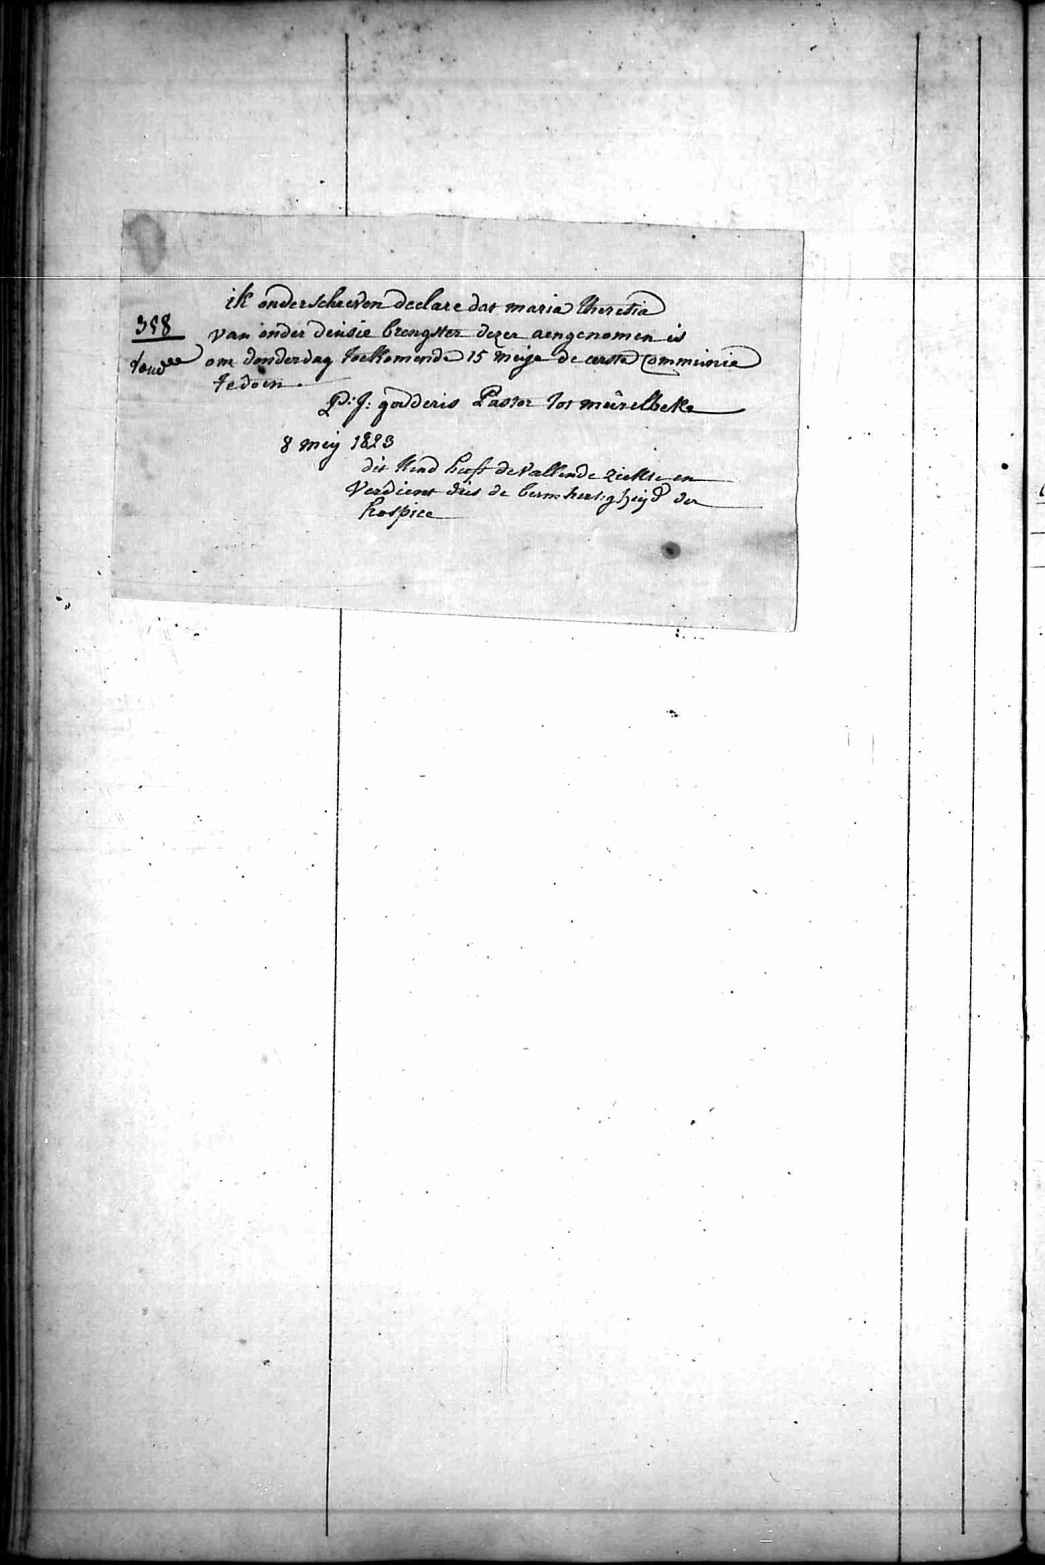 358
ik onderschreven declare dat maria theresia
van onder densie brengster dezer aengenomen is
om donderdag toekomende 15 meije de eerste Communie
te doen.
P: J: godderis Pastor tot meirelbeke
8 meij 1823
dit kind heeft de vallende ziekte en
verdient dus de bermhertigheijd der
hospice